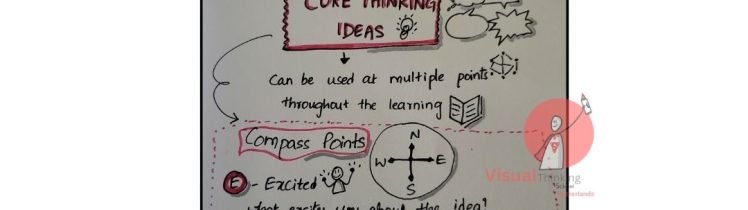 CORE THINKING
IDEAS
Can be used at multiple points
throughout the learning
Compass Points
N
W E
S
E - Excited
what excites you about the idea?
Visual Thinking
School
Netherlands